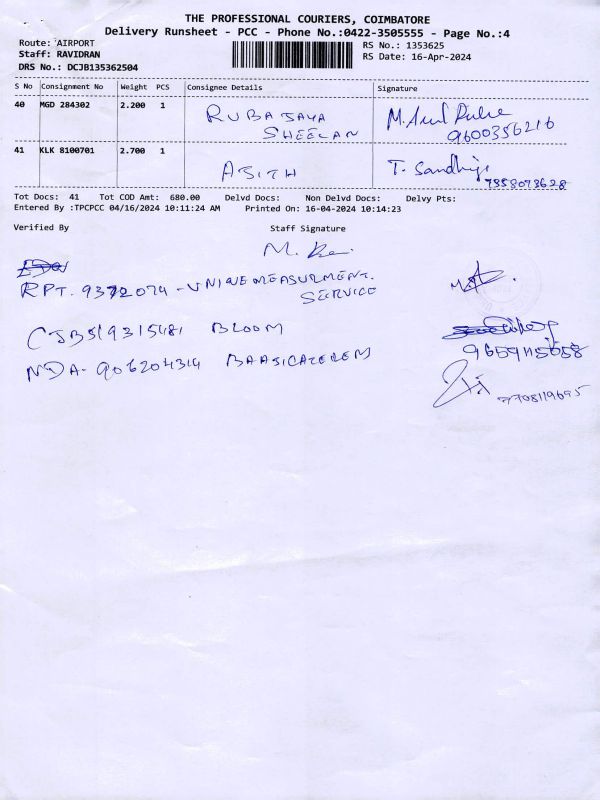 THE PROFESSIONAL COURIERS, COIMBATORE
Delivery Runsheet - PCC - Phone No.:0422-3505555 - Page No.:4
Route: AIRPORT
RS No.: 1353625
Staff: RAVIDRAN
RS Date: 16-Apr-2024
DRS No.: DCJB135362504
S No Consignment No Weight PCS Consignee Details Signature
40 MGD 284302 2.200 1 RUBA JAYA
SHEELAN
9600356216
41 KLK 8100701 2.700 1 AJITH T. Sandhiya
7358073628
Tot Docs: 41 Tot COD Amt: 680.00 Delvd Docs: Non Delvd Docs: Delvy Pts:
Entered By :TPCPCC 04/16/2024 10:11:24 AM Printed On: 16-04-2024 10:14:23
Verified By Staff Signature
RPT. 9372074 - UNIQUE MEASURMENT.
SERVICE
CJB519315481 BLOOM
9659115658
NDA- 906204314
7708119695